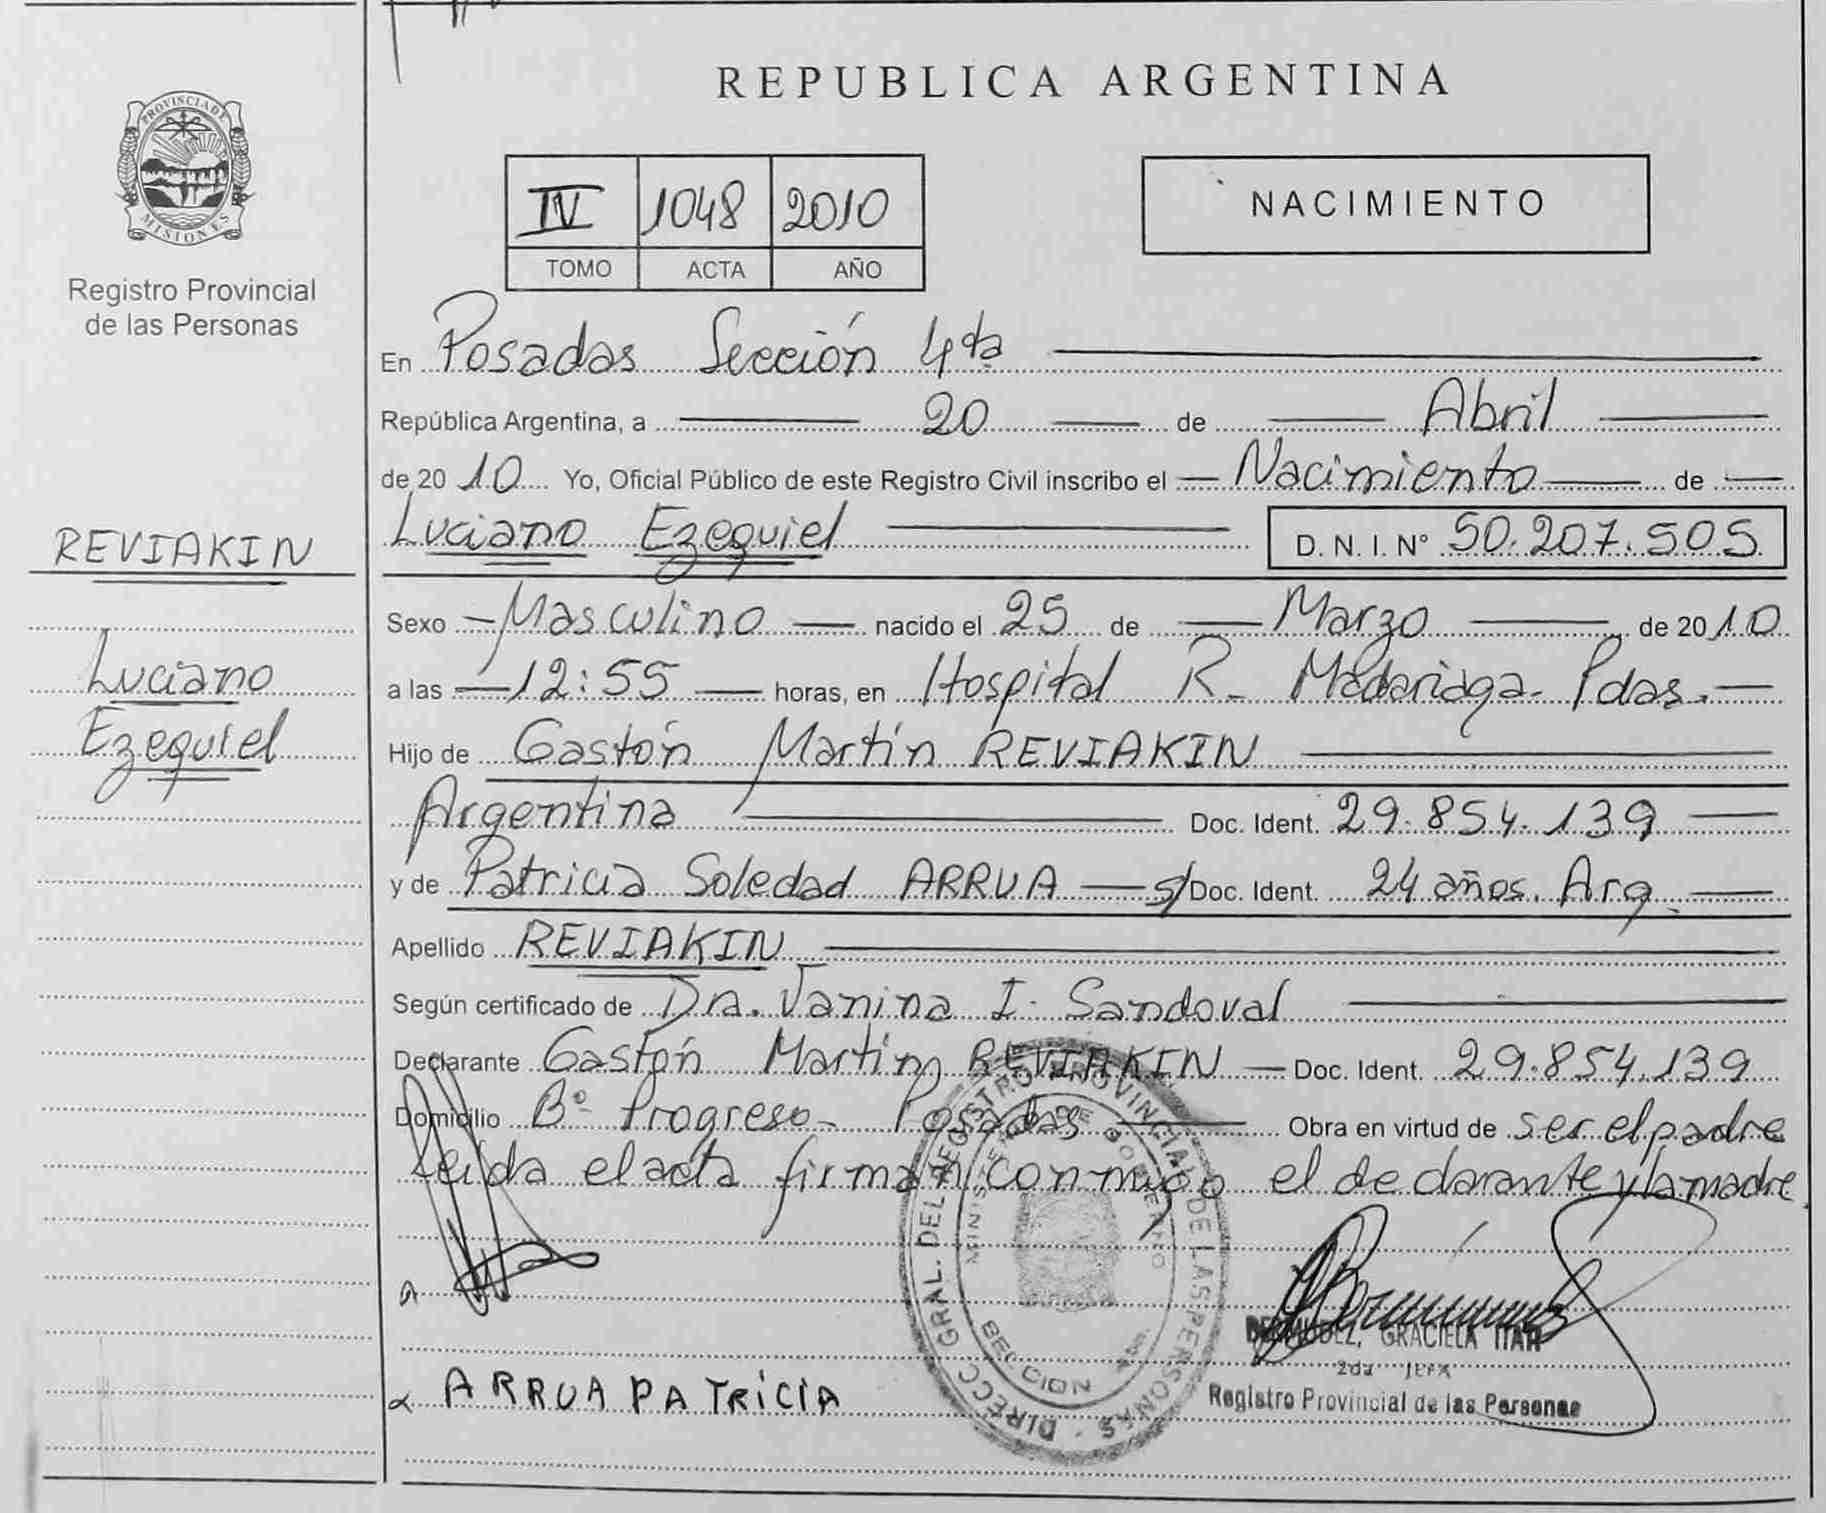 REPUBLICA ARGENTINA
PROVINCIA DE MISIONES
Registro Provincial
de las Personas
IV 1048 2010
TOMO ACTA AÑO
NACIMIENTO
En Posadas Sección 4ta
República Argentina, a 20 de Abril
de 2010 Yo, Oficial Público de este Registro Civil inscribo el Nacimiento de
Luciano Ezequiel D. N. I. N° 50.207.505
REVIAKIN
Luciano
Ezequiel
Sexo Masculino nacido el 25 de Marzo de 2010
a las 12:55 horas, en Hospital R. Madariaga. Pdas.
Hijo de Gastón Martín REVIAKIN
Argentina Doc. Ident. 29.854.139
y de Patricia Soledad ARRUA s/Doc. Ident. 24 años. Arg.
Apellido REVIAKIN
Según certificado de Dra. Vanina I. Sandoval
Declarante Gastón Martín REVIAKIN Doc. Ident. 29.854.139
Domicilio Bº Progreso - Posadas Obra en virtud de ser el padre
Leida el acta firman conmigo el declarante y la madre.
DIRECC GRAL. DEL REGISTRO PROVINCIAL DE LAS PERSONAS
MINISTERIO DE GOBIERNO
SECCION 4ta.
BERMUDEZ, GRACIELA ITATI
2da JEFA
Registro Provincial de las Personas
ARRUA PATRICIA